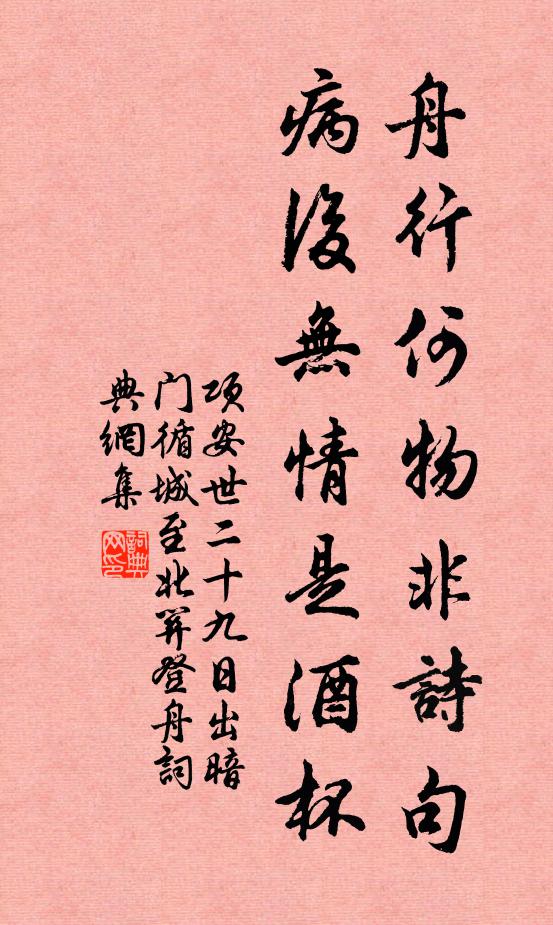 舟行何物非詩句
病後無情是酒杯
项安世二十九日出暗
门循城至北筭登舟詞
典網集
詞典网印